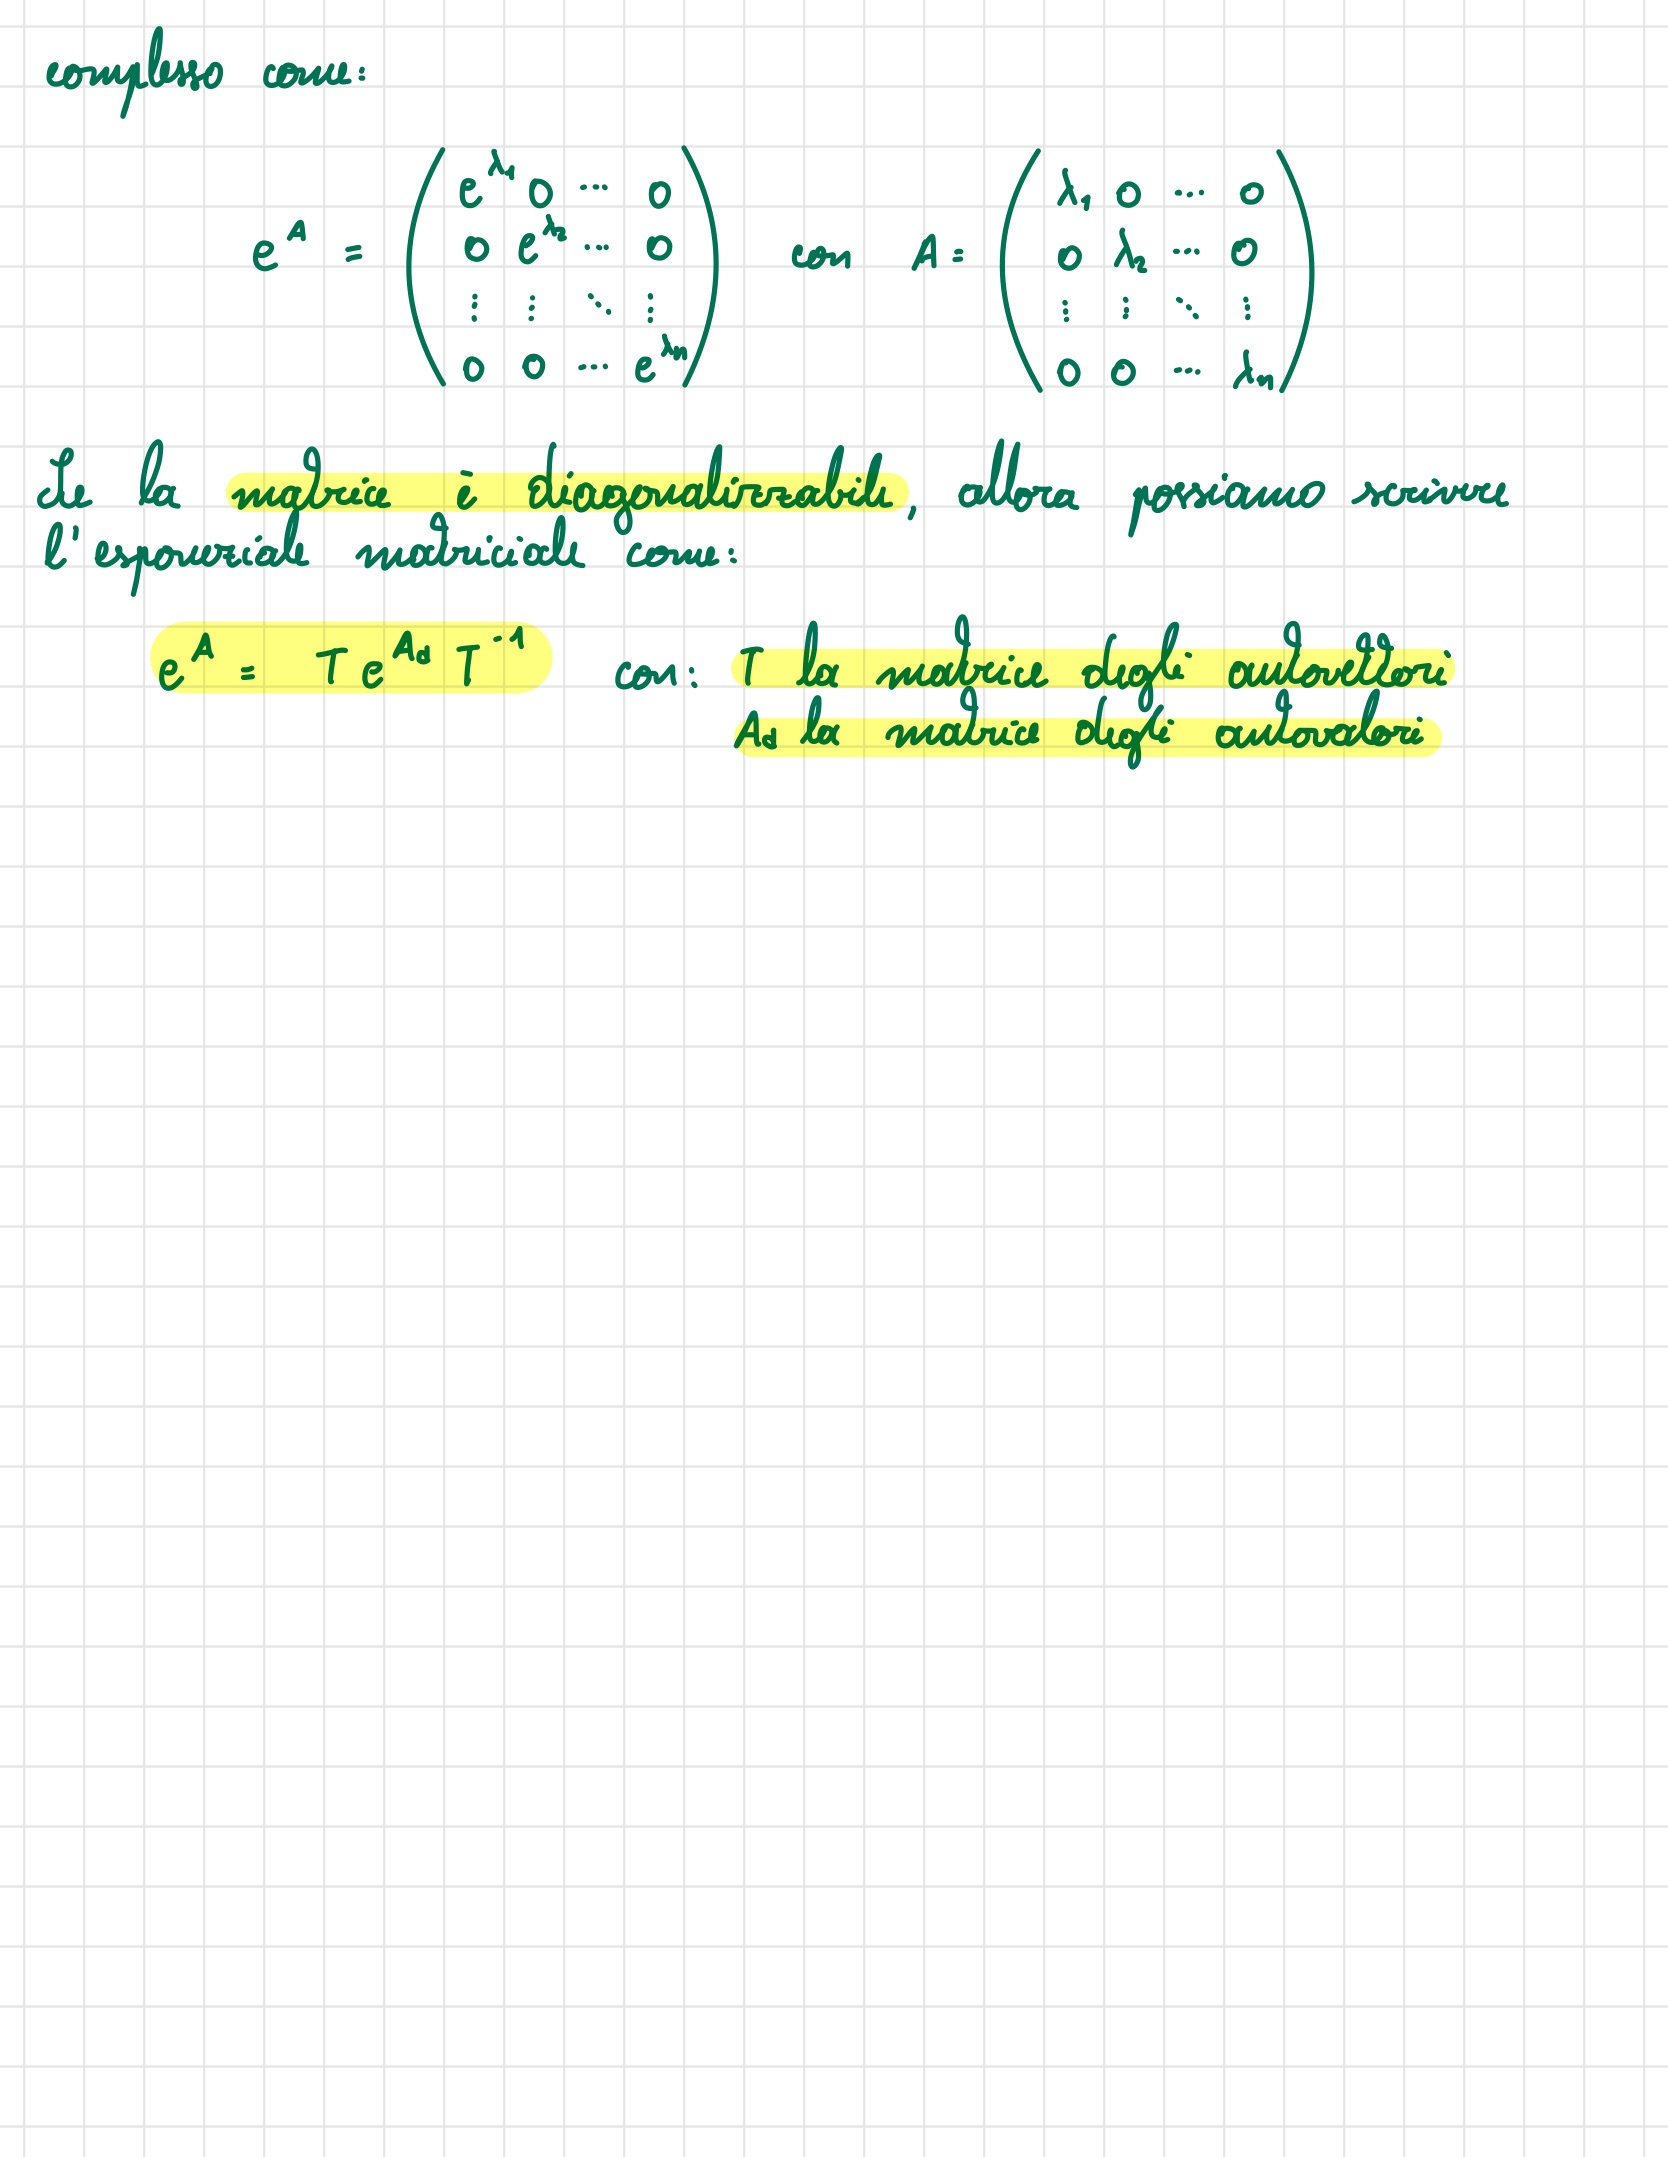 complesso come:
e^A = ( e^λ₁ 0 ... 0 ; 0 e^λ₂ ... 0 ; ⋮ ⋮ ⋱ ⋮ ; 0 0 ... e^λₙ ) con A = ( λ₁ 0 ... 0 ; 0 λ₂ ... 0 ; ⋮ ⋮ ⋱ ⋮ ; 0 0 ... λₙ )
Se la matrice è diagonalizzabile, allora possiamo scrivere
l'esponenziale matriciale come:
e^A = T e^(A_d) T^-1 con: T la matrice degli autovettori
A_d la matrice degli autovalori